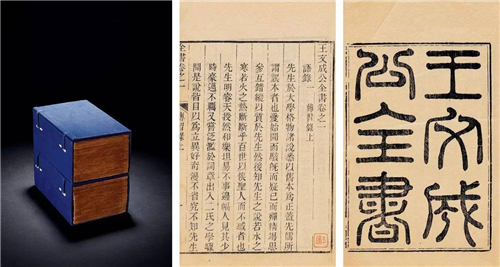 王文成公全書卷之一
語錄一 傳習錄上
先生於大學格物諸說悉以舊本為正蓋先儒所
謂誤本者也愛始聞而駭既而疑已而殫精竭思
參互錯縱以質於先生然後知先生之說若水之
寒若火之熱斷斷乎百世以俟聖人而不惑者也
先生明睿天授然和樂坦易不事邊幅人見其少
時豪邁不羈又嘗泛濫於詞章出入二氏之學驟
聞是說皆目以為立異好奇漫不省究不知先生
全書卷之一 傳習錄上
王文成
公全書